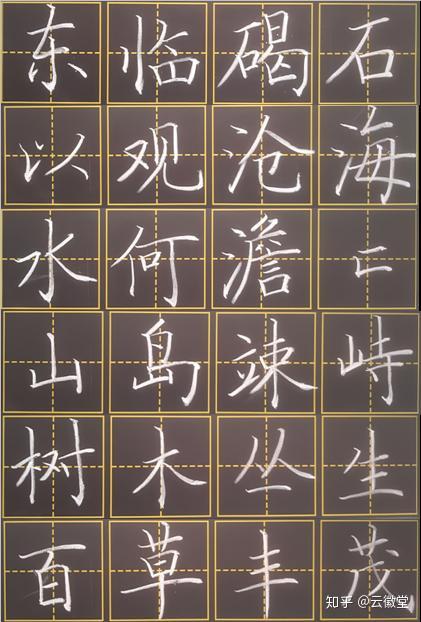 东临碣石
以观沧海
水何澹〻
山島竦峙
树木丛生
百草丰茂
知乎 @云徽堂